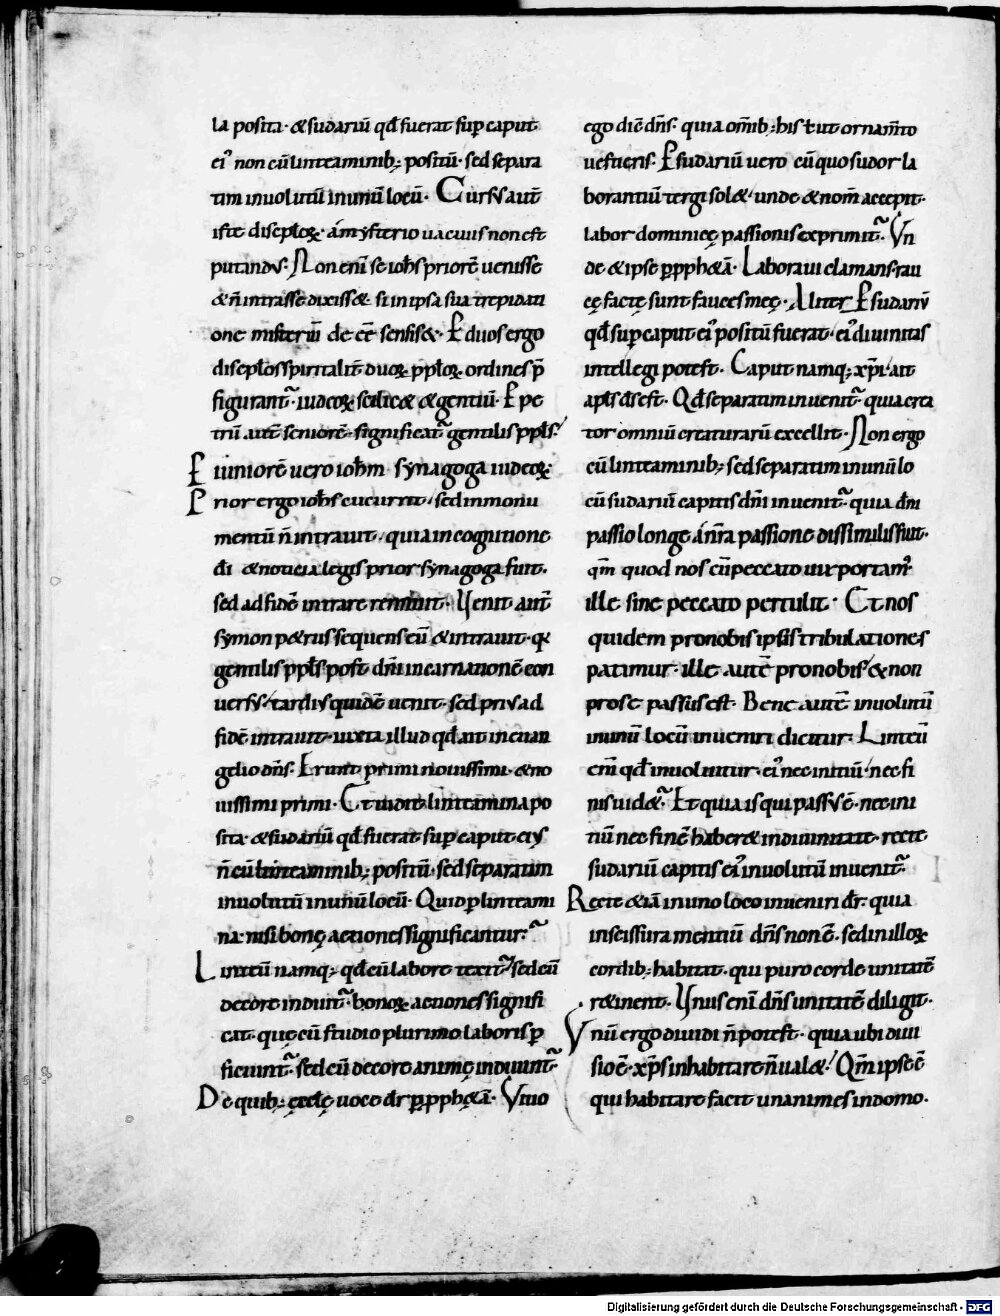 la posita· & sudariū qđ fuerat sup̄ caput
ei᾽ non cū linteaminib; positū· sed separa
tim inuolutū in unū locū· Cursꝰ aut̄
iste disciploꝝ· á mysterio uacuus non est
putandꝰ· Non eni se ioh̄s priorē uenisse
& n̄ intrasse dixiss& si in ipsa sua trepidati
one misteriū deēē sensiss&· Per duos ergo
discipłos spiritalit̄ duoꝝ pp̄loꝝ ordines p̄
figurant᷑· iudeoꝝ scilic& & gentiū· Per pe
trū aut̄ seniorē significat᷑ gentilis pp̄ls·
Per iuniorē uero ioh̄m synagoga iudeoꝝ·
Prior ergo ioh̄s cucurrit· sed in monu
mentū n̄ intrauit· quia in cognitione
dī & noticia legis prior synagoga fuit·
sed ad fidē intrare rennuit· Uenit aut̄
symon p&rus sequens eū & intrauit· qꝛ
gentilis pp̄ls post dn̄i incarnationē con
uersꝰ· tardiꝰ quidē uenit· sed priꝰ ad
fidē intrauit· iuxta illud qđ ait in euan
gelio dn̄s· Erunt primi nouissimi· & no
uissimi primi· Et uidit linteamina po
sita· & sudariū qđ fuerat sup̄ caput eiꝰ
n̄ cū linteaminib; positū· sed separatim
inuolutū in unū locū· Quid p̄ linteami
na· nisi bonę actiones significantur᷑·
Linteū namq; qđ cū labore texit᷑ sed cū
decore induit᷑· bonoꝝ actiones signifi
cat· quę cū studio plurimo laboris p̄
ficiunt᷑· sed cū decore animę induunt᷑·
De quib; ęcclę uoce dr̄ p̄ pph&ā· Viuo
ego dič dn̄s· quia om̄ib; his t̄ ut ornam̄to
uestieris· Per sudariū uero cū quo sudor la
borantiū tergi sol& unde & nom̄ accepit·
labor dominicę passionis exprimit᷑· Un
de & ipse p̄ pph&ā· Laboraui clamans rau
cę factę sunt fauces meę· Aliter Per sudariū
qđ sup̄ caput ei᾽ positū fuerat· ei᾽ diuinitas
intellegi potest· Caput namq; xp̄i ait
apłs d̄s est· Qđ separatim inuenit᷑ quia crea
tor omniū creaturarū excellit· Non ergo
cū linteaminib; sed separatim in unū lo
cū sudariū capitis dn̄i inuenit᷑ quia dn̄i
passio longe á nr̄a passione dissimilis fuit·
qm̄ quod nos cū peccato uix portam᾽
ille sine peccato pertulit· Et nos
quidem pro nobis ipsis tribulationes
patimur· ille autē pro nobis· & non
pro se passus est· Bene autē inuolutū
in unū locū inueniri dicitur· Linteū
eni qđ inuoluitur· ei᾽ nec initiū· nec fi
nis uid&᷑· Et quia is qui passꝰ ē· nec ini
tiū nec finē haber& in diuinitate· recte
sudariū capitis ei᾽ inuolutū inuenit᷑·
Recte &iā in uno loco inueniri dr̄· quia
in scissura mentiū dn̄s non ē· sed in illoꝝ
cordib; habitat· qui puro corde unitatē
r&inent· Unus eni dn̄s unitatē diligit·
Unū ergo diuidi n̄ potest· quia ubi diui
sio ē· xp̄s inhabitare n̄ ual&· Qm̄ ipse ē
qui habitare facit unanimes in domo·
Digitalisierung gefördert durch die Deutsche Forschungsgemeinschaft - DFG